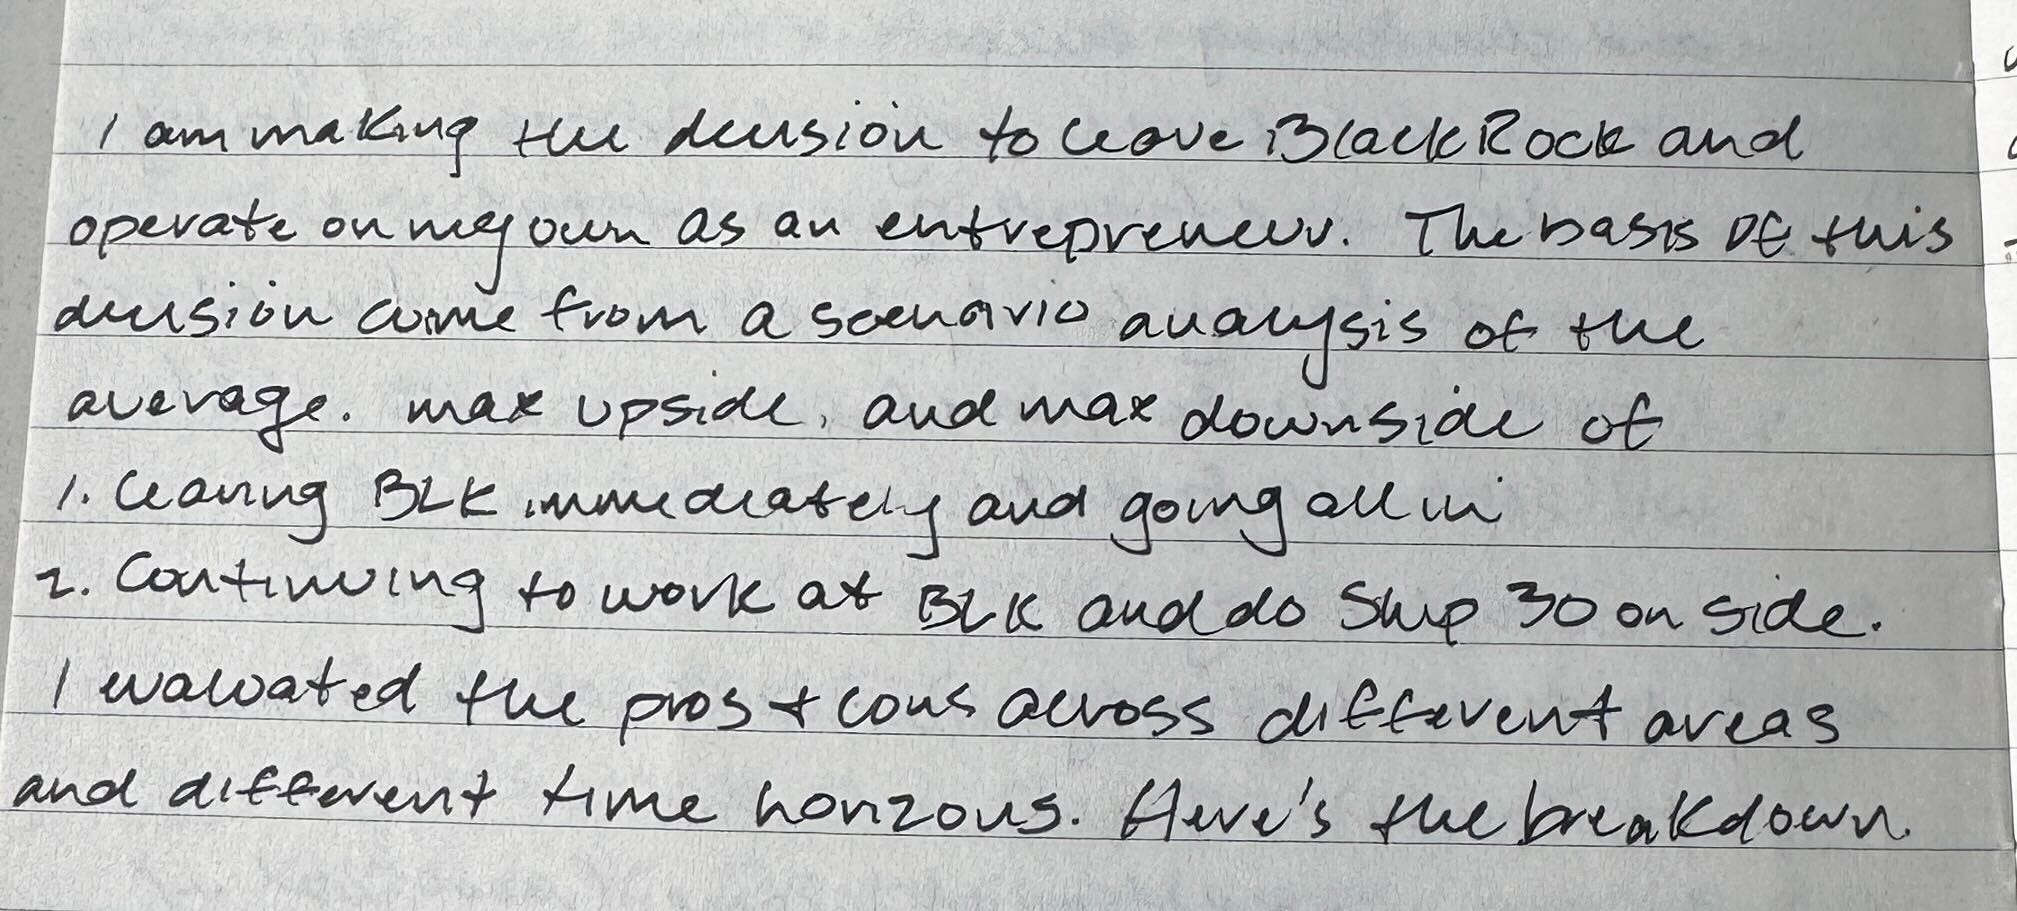 I am making the decision to leave BlackRock and
operate on my own as an entrepreneur. The basis of this
decision come from a scenario analysis of the
average. max upside, and max downside of
1. Leaving BLK immediately and going all in
2. Continuing to work at BLK and do Ship 30 on side.
I evaluated the pros + cons across different areas
and different time horizons. Here's the breakdown.